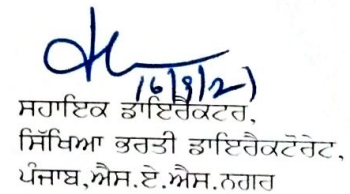 16/9/21
ਸਹਾਇਕ ਡਾਇਰੈਕਟਰ,
ਸਿੱਖਿਆ ਭਰਤੀ ਡਾਇਰੈਕਟੋਰੇਟ,
ਪੰਜਾਬ,ਐਸ.ਏ.ਐਸ.ਨਗਰ